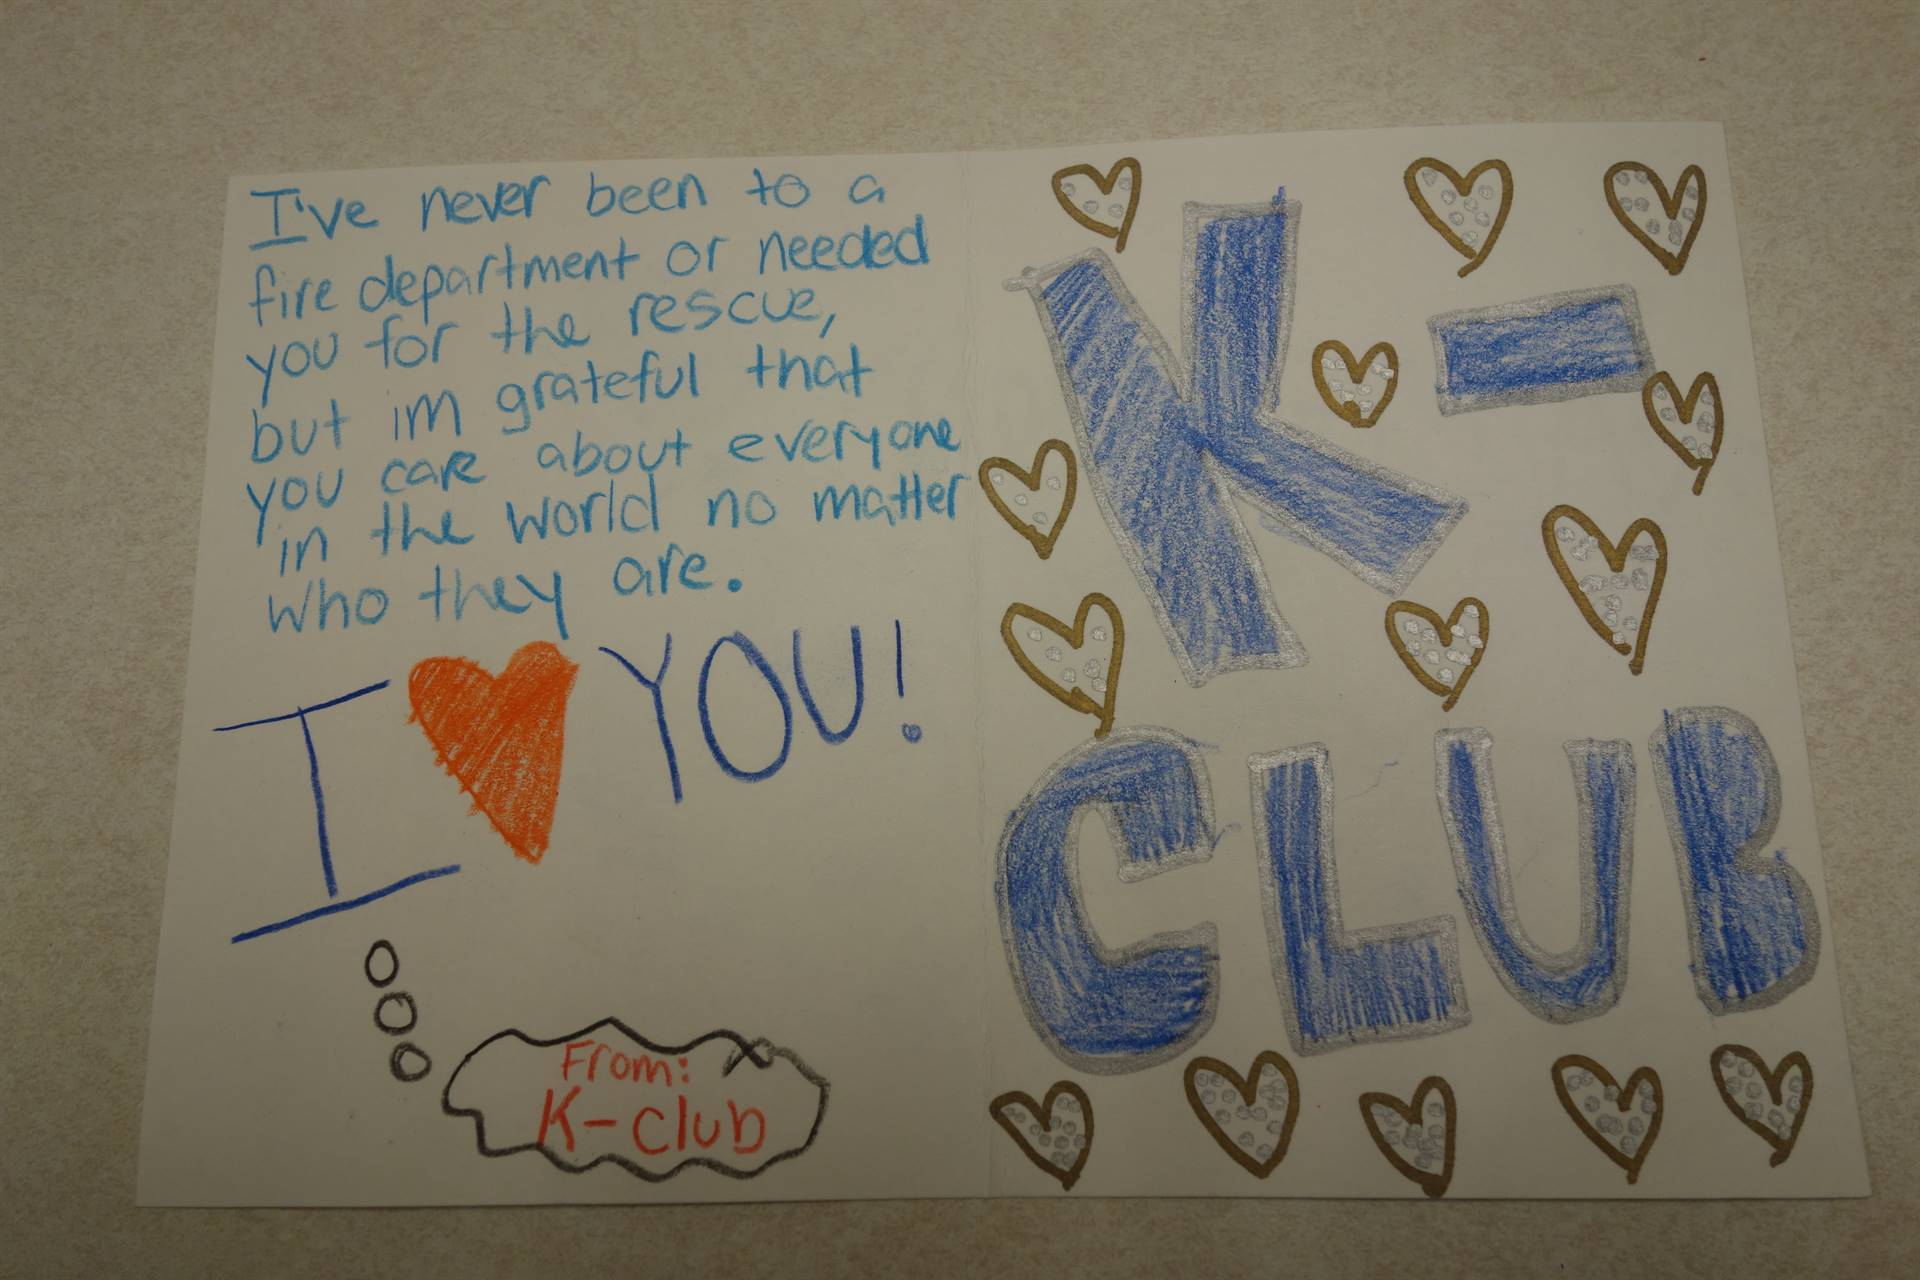 I've never been to a
fire department or needed
you for the rescue,
but im grateful that
you care about everyone
in the world no matter
who they are.
I YOU!
From:
K-club
K-
CLUB